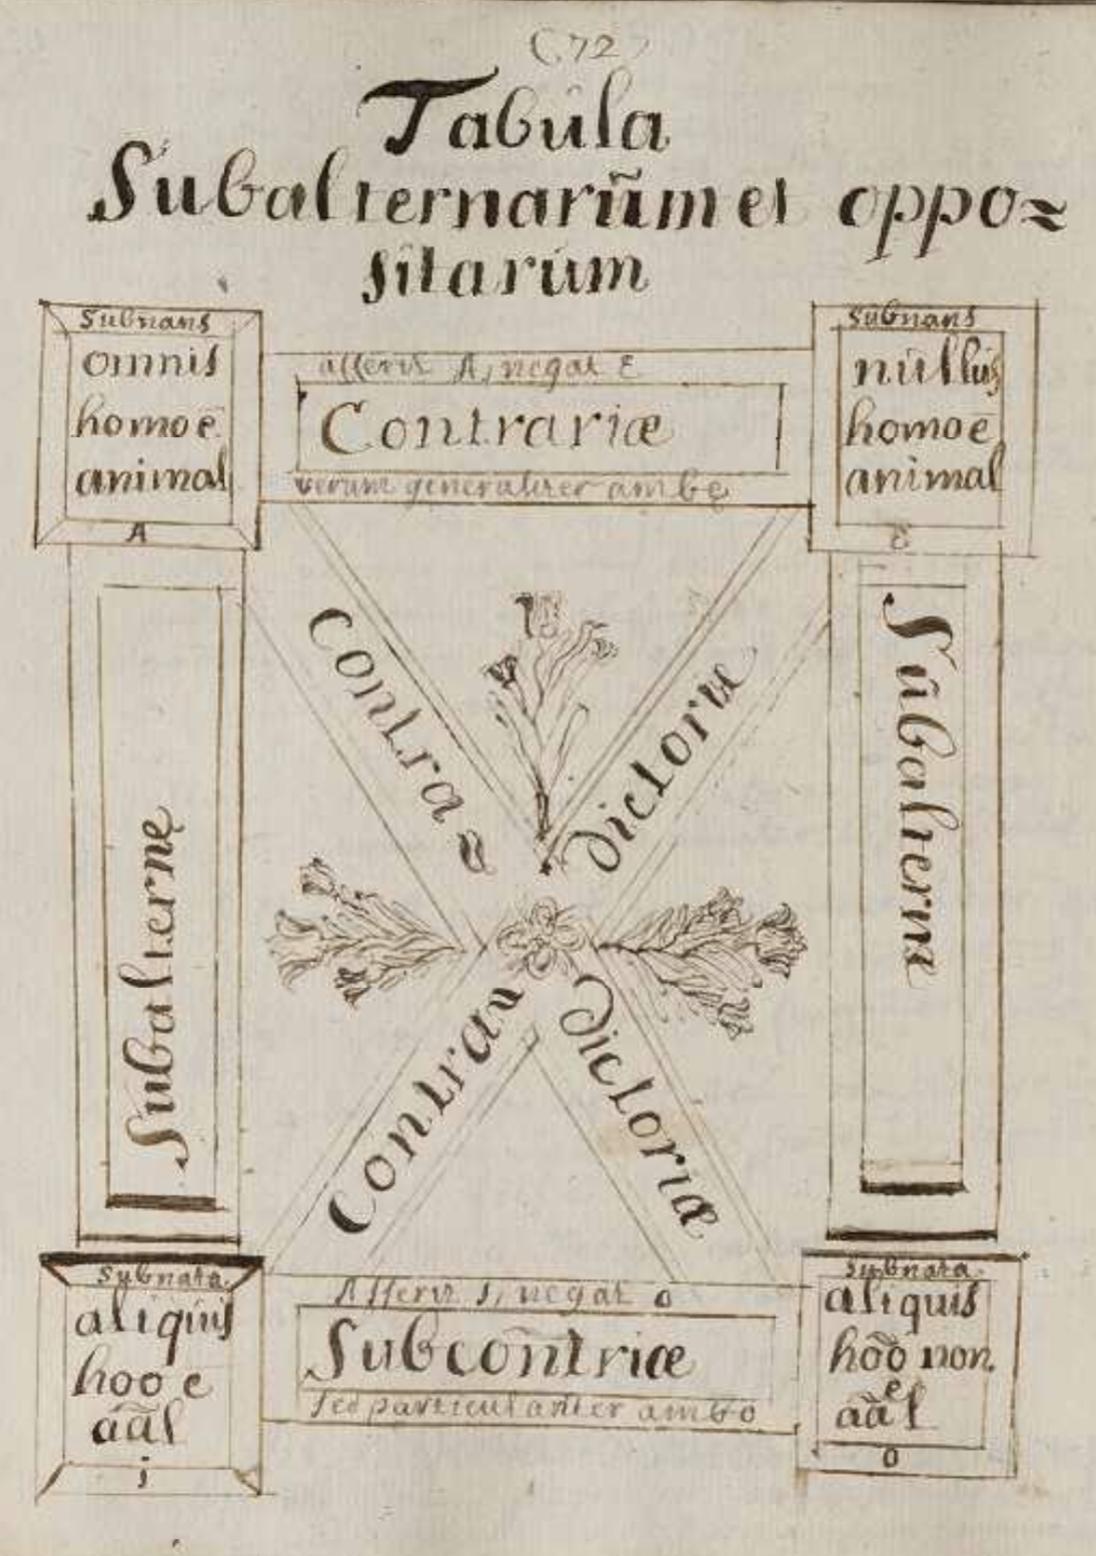 (72)
Tabula
Subalternarũm et oppo=
sitarum
Subnans
omnis
homo ē
animal
A
asserit A, negat E
Contrariæ
verum generaliter ambę
Subnans
nullus
homo ē
animal
E
Contra=
dictoriæ
Subalternę
Subalternæ
Contra=
dictoriæ
Subnata.
aliquis
hoo e
aãl
i
Asserit I, negat o
Subcõntriæ
sed particulariter ambo
Subnata.
aliquis
hõo non
e
aãl
O